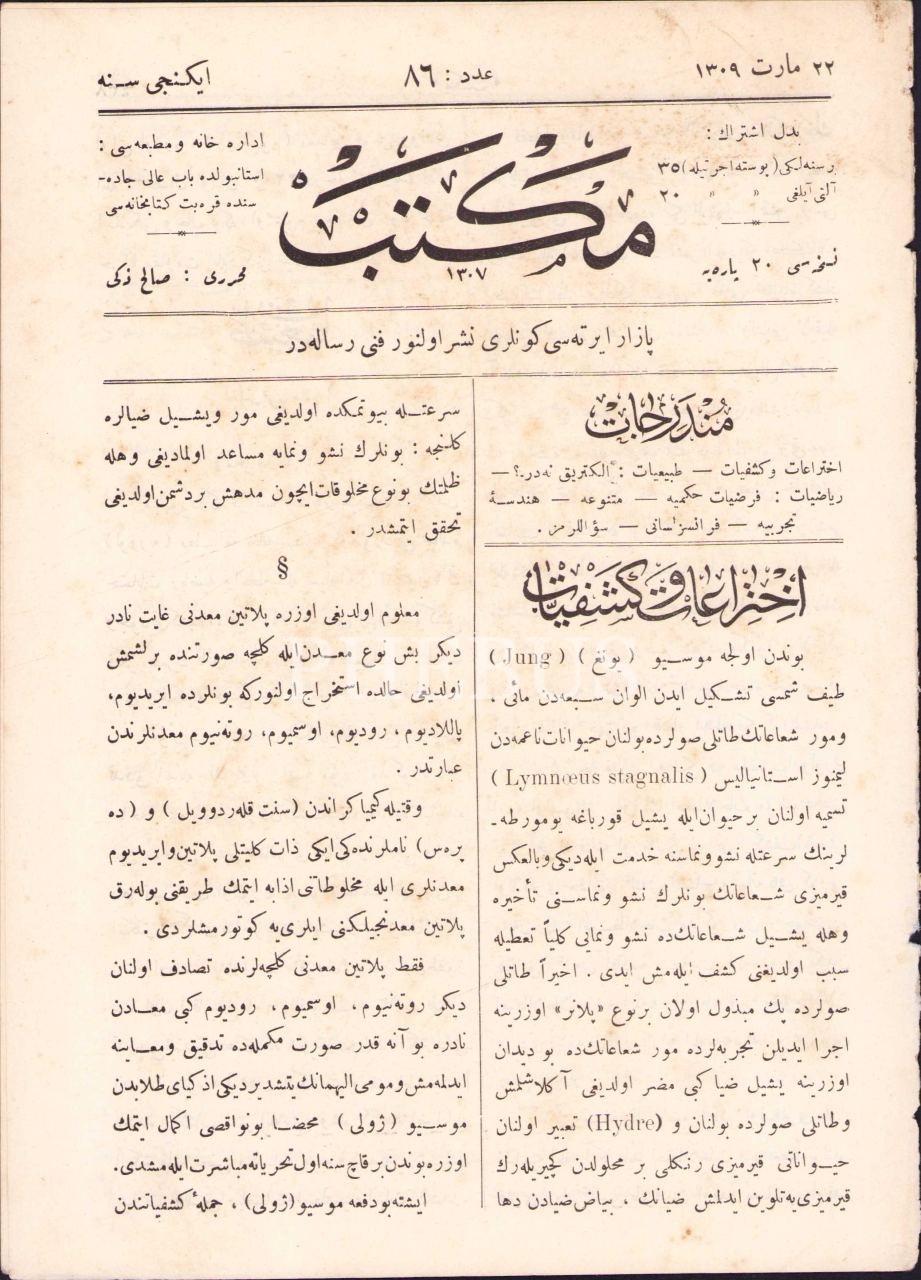 ٢٢ مارت ١٣٠٩
عدد : ٨٦
ایكنجی سنه
بدل اشتراك :
برسنه‌لكی (پوسته اجرتیله) ٣٥
آلتی آیلغی » » ٢٠
نسخه‌سی ٢٠ پاره‌یه
مكتب
١٣٠٧
اداره خانه ومطبعه‌سی :
استانبولده باب عالی جاده-
سنده قره‌بت كتابخانه‌سی
محرری : صالح ذكی
پازار ایرته‌سی كونلری نشر اولنور فنی رساله‌در
مُندرجات
اختراعات وكشفیات — طبیعیات : الكتریق نه‌در؟ —
ریاضیات : فرضیات حكمیه — متنوعه — هندسهٔ
تجربیه — فرانسز لسانی — سؤاللرمز .
اختراعات وكشفیات
بوندن اولجه موسیو ( یونغ ) ( Jung )
طیف شمسی تشكیل ایدن الوان سبعه‌دن مائی ،
ومور شعاعاتك طاتلی صولرده بولنان حیوانات ناعمه‌دن
لیمنوز استانیالیس ( Lymnœus stagnalis )
تسمیه اولنان بر حیوان ایله یشیل قورباغه یومورطه-
لرینك سرعتله نشو ونماسنه خدمت ایله‌دیكی وبالعكس
قیرمیزی شعاعاتك بونلرك نشو ونماسنی تأخیره
وهله یشیل شعاعاتك‌ده نشو ونمایی كلیاً تعطیله
سبب اولدیغنی كشف ایله‌مش ایدی . اخیراً طاتلی
صولرده پك مبذول اولان برنوع «پلانر» اوزرینه
اجرا ایدیلن تجربه‌لرده مور شعاعاتك‌ده بو دیدان
اوزرینه یشیل ضیا كبی مضر اولدیغی آكلاشلمش
وطاتلی صولرده بولنان و (Hydre) تعبیر اولنان
حیواناتی قیرمیزی رنكلی بر محلولدن كچیریله‌رك
قیرمیزی‌یه تلوین ایدلمش ضیانك ، بیاض ضیادن دها
سرعتله بیوتمكده اولدیغی مور ویشیل ضیالره
كلنجه : بونلرك نشو ونمایه مساعد اولمادیغی وهله
ظلمتك بونوع مخلوقات ایچون مدهش بر دشمن اولدیغی
تحقق ایتمشدر .
§
معلوم اولدیغی اوزره پلاتین معدنی غایت نادر
دیكر بش نوع معدن ایله كلچه صورتنده برلشمش
اولدیغی حالده استخراج اولنوركه بونلرده ایریدیوم،
پاللادیوم ، رودیوم، اوسمیوم، روته‌نیوم معدنلرندن
عبارتدر .
وقتیله كیمیاكراندن (سنت قله‌ر دوویل ) و ( ده
بره‌س) ناملرنده‌كی ایكی ذات كلیتلی پلاتین وایریدیوم
معدنلری ایله مخلوطاتنی اذابه ایتمك طریقنی بوله‌رق
پلاتین معدنجیلكنی ایلری‌یه كوتورمشلردی .
فقط پلاتین معدنی كلچه‌لرنده تصادف اولنان
دیكر روته‌نیوم، اوسمیوم، رودیوم كبی معادن
نادره بو آنه قدر صورت مكمله‌ده تدقیق ومعاینه
ایدلمه‌مش ومومی الیهمانك یتشدیردیكی اذكیای طلابدن
موسیو (ژولی) محضا بو نواقصی اكمال ایتمك
اوزره بوندن برقاچ سنه اول تحریاته مباشرت ایله‌مشدی.
ایشته بودفعه موسیو (ژولی) ، جملهٔ كشفیاتندن